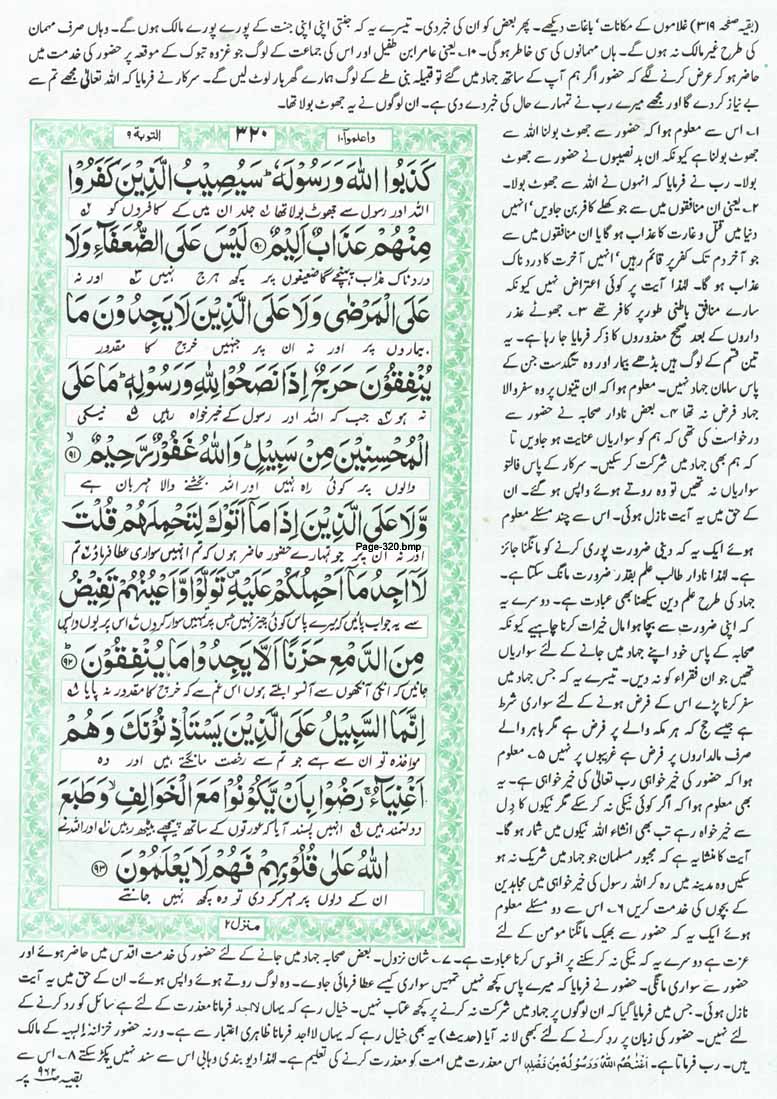 (بقیہ صفحہ ۳۱۹) غلاموں کے مکانات' باغات دیکھے۔ پھر بعض کو ان کی خبر دی۔ تیسرے یہ کہ جنتی اپنی اپنی جنت کے پورے پورے مالک ہوں گے۔ وہاں صرف مہمان
کی طرح غیر مالک نہ ہوں گے۔ ہاں مہمانوں کی سی خاطر ہوگی۔ ۱۰۔ یعنی عامر ابن طفیل اور اس کی جماعت کے لوگ جو غزوہ تبوک کے موقعہ پر حضور کی خدمت میں
حاضر ہو کر عرض کرنے لگے کہ حضور اگر ہم آپ کے ساتھ جہاد میں گئے تو قبیلہ بنی طے کے لوگ ہمارے گھر بار لوٹ لیں گے۔ سرکار نے فرمایا کہ اللہ تعالیٰ مجھے تم سے
بے نیاز کر دے گا اور مجھے میرے رب نے تمہارے حال کی خبر دے دی ہے۔ ان لوگوں نے یہ جھوٹ بولا تھا۔
واعلموا۱۰
۳۲۰
التوبة ۹
كَذَبُوا اللّٰهَ وَرَسُوْلَهٗ ؕ سَيُصِيْبُ الَّذِيْنَ كَفَرُوْا
اللہ اور رسول سے جھوٹ بولا تھا جلد ان میں کے کافروں کو
مِنْهُمْ عَذَابٌ اَلِيْمٌ ۹۰ لَيْسَ عَلَى الضُّعَفَآءِ وَلَا
دردناک عذاب پہنچے گا ضعیفوں پر کچھ حرج نہیں اور نہ
عَلَى الْمَرْضٰى وَلَا عَلَى الَّذِيْنَ لَا يَجِدُوْنَ مَا
بیماروں پر اور نہ ان پر جنہیں خرچ کا مقدور
يُنْفِقُوْنَ حَرَجٌ اِذَا نَصَحُوْا لِلّٰهِ وَرَسُوْلِهٖ ؕ مَا عَلَى
نہ ہو جب کہ اللہ اور رسول کے خیرخواہ رہیں نیکی
الْمُحْسِنِيْنَ مِنْ سَبِيْلٍ ؕ وَاللّٰهُ غَفُوْرٌ رَّحِيْمٌ ۙ ۹۱
والوں پر کوئی راہ نہیں اور اللہ بخشنے والا مہربان ہے
وَّلَا عَلَى الَّذِيْنَ اِذَا مَاۤ اَتَوْكَ لِتَحْمِلَهُمْ قُلْتَ
اور نہ ان پر جو تمہارے حضور حاضر ہوں کہ تم انہیں سواری عطا فرماؤ تم
Page-320.bmp
لَاۤ اَجِدُ مَاۤ اَحْمِلُكُمْ عَلَيْهِ تَوَلَّوْا وَّاَعْيُنُهُمْ تَفِيْضُ
سے یہ جواب پائیں کہ میرے پاس کوئی چیز نہیں جس پر تمہیں سوار کروں اس پر یوں واپس
مِنَ الدَّمْعِ حَزَنًا اَلَّا يَجِدُوْا مَا يُنْفِقُوْنَ ؕ ۹۲
جائیں کہ انکی آنکھوں سے آنسو ابلتے ہوں اس غم سے کہ خرچ کا مقدور نہ پایا
اِنَّمَا السَّبِيْلُ عَلَى الَّذِيْنَ يَسْتَاْذِنُوْنَكَ وَهُمْ
مواخذہ تو ان سے ہے جو تم سے رخصت مانگتے ہیں اور وہ
اَغْنِيَآءُ ۚ رَضُوْا بِاَنْ يَّكُوْنُوْا مَعَ الْخَوَالِفِ ۙ وَطَبَعَ
دولتمند ہیں انہیں پسند آیا کہ عورتوں کے ساتھ پیچھے بیٹھ رہیں اور اللہ نے
اللّٰهُ عَلٰى قُلُوْبِهِمْ فَهُمْ لَا يَعْلَمُوْنَ ۹۳
ان کے دلوں پر مہر کر دی تو وہ کچھ نہیں جانتے
منزل ۲
۱۔ اس سے معلوم ہوا کہ حضور سے جھوٹ بولنا اللہ سے
جھوٹ بولنا ہے کیونکہ ان بدنصیبوں نے حضور سے جھوٹ
بولا۔ رب نے فرمایا کہ انہوں نے اللہ سے جھوٹ بولا۔
۲۔ یعنی ان منافقوں میں سے جو کھلے کافر بن جاویں' انہیں
دنیا میں قتل و غارت کا عذاب ہو گا یا ان منافقوں میں سے
جو آخر دم تک کفر پر قائم رہیں' انہیں آخرت کا دردناک
عذاب ہو گا۔ لہٰذا آیت پر کوئی اعتراض نہیں کیونکہ
سارے منافق باطنی طور پر کافر تھے ۳۔ جھوٹے عذر
داروں کے بعد صحیح معذوروں کا ذکر فرمایا جا رہا ہے۔ یہ
تین قسم کے لوگ ہیں بڈھے بیمار اور وہ تنگدست جن کے
پاس سامان جہاد نہیں۔ معلوم ہوا کہ ان تینوں پر وہ سفر والا
جہاد فرض نہ تھا ۴۔ بعض نادار صحابہ نے حضور سے
درخواست کی تھی کہ ہم کو سواریاں عنایت ہو جاویں تا
کہ ہم بھی جہاد میں شرکت کر سکیں۔ سرکار کے پاس فالتو
سواریاں نہ تھیں تو وہ روتے ہوئے واپس ہو گئے۔ ان
کے حق میں یہ آیت نازل ہوئی۔ اس سے چند مسئلے معلوم
ہوئے ایک یہ کہ دینی ضرورت پوری کرنے کو مانگنا جائز
ہے۔ لہٰذا نادار طالب علم بقدر ضرورت مانگ سکتا ہے۔
جہاد کی طرح علم دین سیکھنا بھی عبادت ہے۔ دوسرے یہ
کہ اپنی ضرورت سے بچا ہوا مال خیرات کرنا چاہیے کیونکہ
صحابہ کے پاس خود اپنے جہاد میں جانے کے لئے سواریاں
تھیں جو ان فقراء کو نہ دیں۔ تیسرے یہ کہ جس جہاد میں
سفر کرنا پڑے اس کے فرض ہونے کے لئے سواری شرط
ہے جیسے حج کہ ہر مکہ والے پر فرض ہے مگر باہر والے
صرف مالداروں پر فرض ہے غریبوں پر نہیں ۵۔ معلوم
ہوا کہ حضور کی خیر خواہی رب تعالیٰ کی خیر خواہی ہے۔ یہ
بھی معلوم ہوا کہ اگر کوئی نیکی نہ کر سکے مگر نیکوں کا دل
سے خیر خواہ رہے تب بھی انشاء اللہ نیکوں میں شمار ہو گا۔
آیت کا منشا یہ ہے کہ مجبور مسلمان جو جہاد میں شریک نہ ہو
سکیں وہ مدینہ میں رہ کر اللہ رسول کی خیر خواہی میں مجاہدین
کے بچوں کی خدمت کریں ۶۔ اس سے دو مسئلے معلوم
ہوئے ایک یہ کہ حضور سے بھیک مانگنا مومن کے لئے
عزت ہے دوسرے یہ کہ نیکی نہ کر سکنے پر افسوس کرنا عبادت ہے۔ ۷۔ شان نزول۔ بعض صحابہ جہاد میں جانے کے لئے حضور کی خدمت اقدس میں حاضر ہوئے اور
حضور سے سواری مانگی۔ حضور نے فرمایا کہ میرے پاس کچھ نہیں تمہیں سواری کیسے عطا فرمائی جاوے۔ وہ لوگ روتے ہوئے واپس ہوئے۔ ان کے حق میں یہ آیت
نازل ہوئی۔ جس میں فرمایا گیا کہ ان لوگوں پر جہاد میں شرکت نہ کرنے پر کچھ عتاب نہیں۔ خیال رہے کہ یہاں لااجد فرمانا معذرت کے لئے ہے سائل کو رد کرنے کے
لئے نہیں۔ حضور کی زبان پر رد کرنے کے لئے کبھی لا نہ آیا (حدیث) یہ بھی خیال رہے کہ یہاں لااجد فرمانا ظاہری اعتبار سے ہے۔ ورنہ حضور خزانہ الہیہ کے مالک
ہیں۔ رب فرماتا ہے۔ اَغْنٰهُمُ اللّٰهُ وَرَسُوْلُهٗ مِنْ فَضْلِهٖ اس معذرت میں امت کو معذرت کرنے کی تعلیم ہے۔ لہٰذا دیوبندی وہابی اس سے سند نہیں پکڑ سکتے ۸۔ اس سے
بقیہ ص۹۶۲ پر